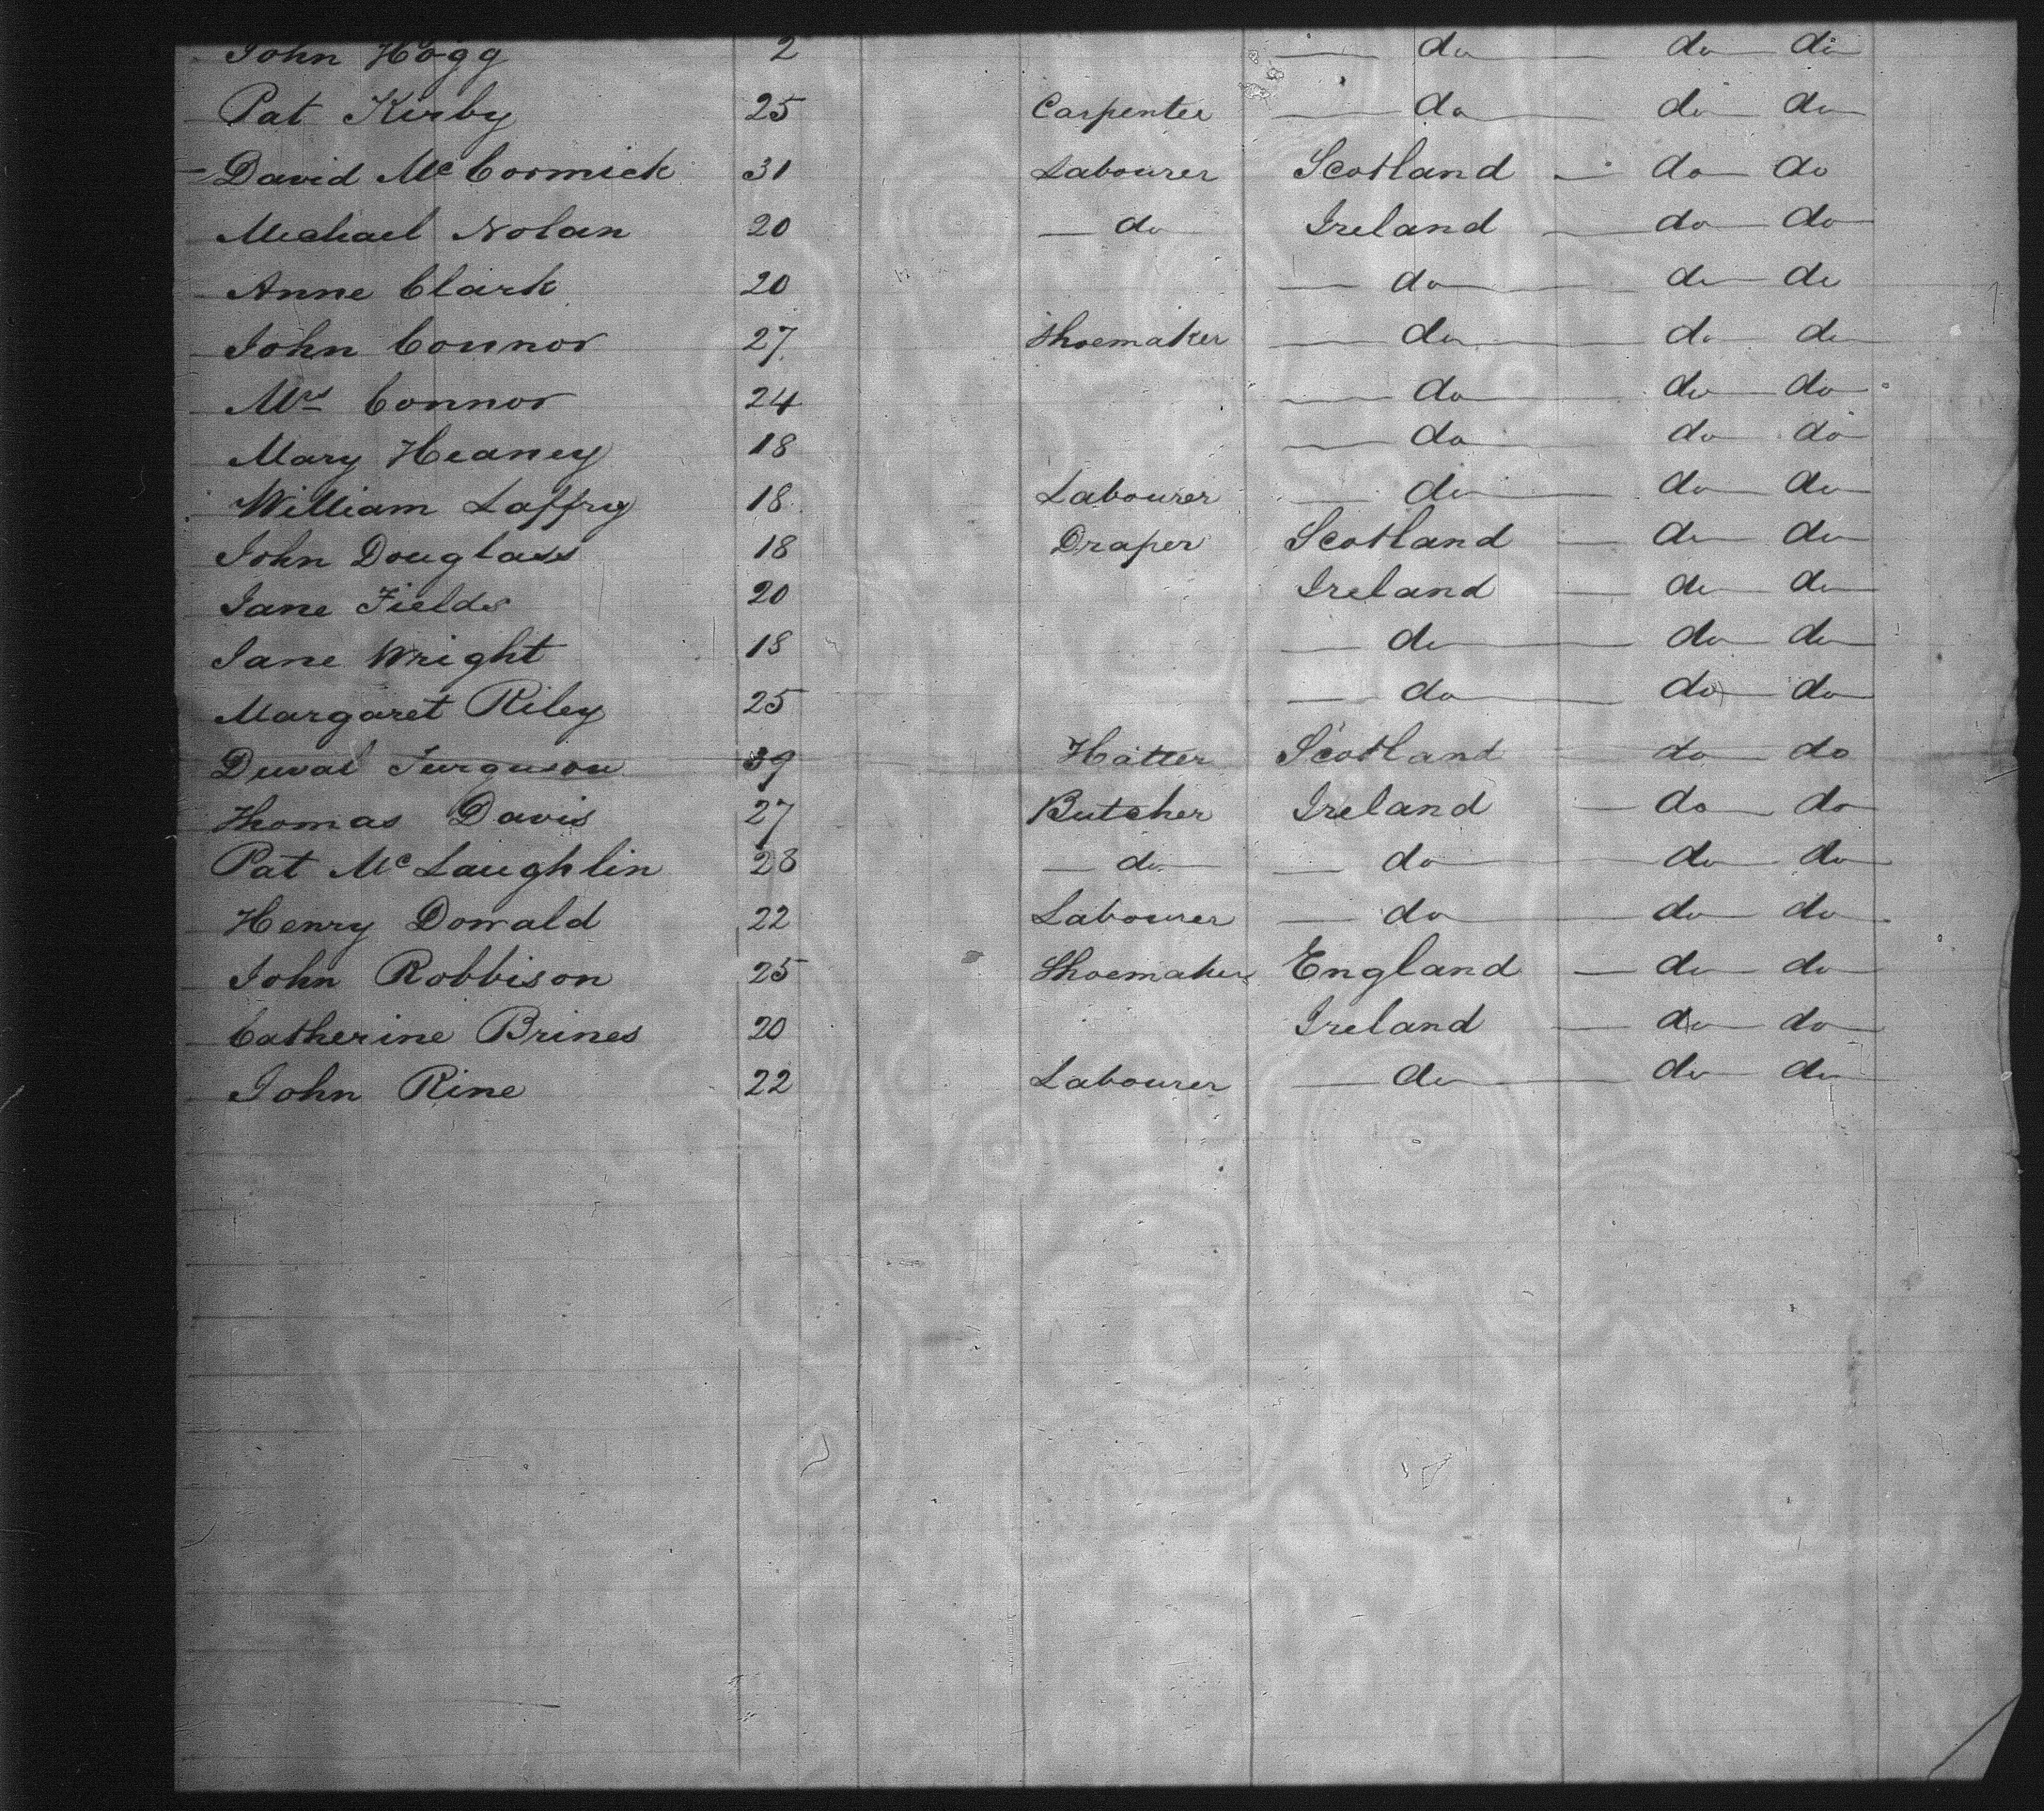 John Hogg 2 do do do
Pat Kirby 25 Carpenter do do do
David McCormick 31 Labourer Scotland do do
Michael Nolan 20 do Ireland do do
Anne Clark 20 do do do
John Connor 27 Shoemaker do do do
Mrs Connor 24 do do do
Mary Heaney 18 do do do
William Laffry 18 Labourer do do do
John Douglass 18 Draper Scotland do do
Jane Fields 20 Ireland do do
Jane Wright 18 do do do
Margaret Riley 25 do do do
Duval Furguson 39 Hatter Scotland do do
Thomas Davis 27 Butcher Ireland do do
Pat McLaughlin 28 do do do do
Henry Donnald 22 Labourer do do do
John Robbison 25 Shoemaker England do do
Catherine Brines 20 Ireland do do
John Rine 22 Labourer do do do